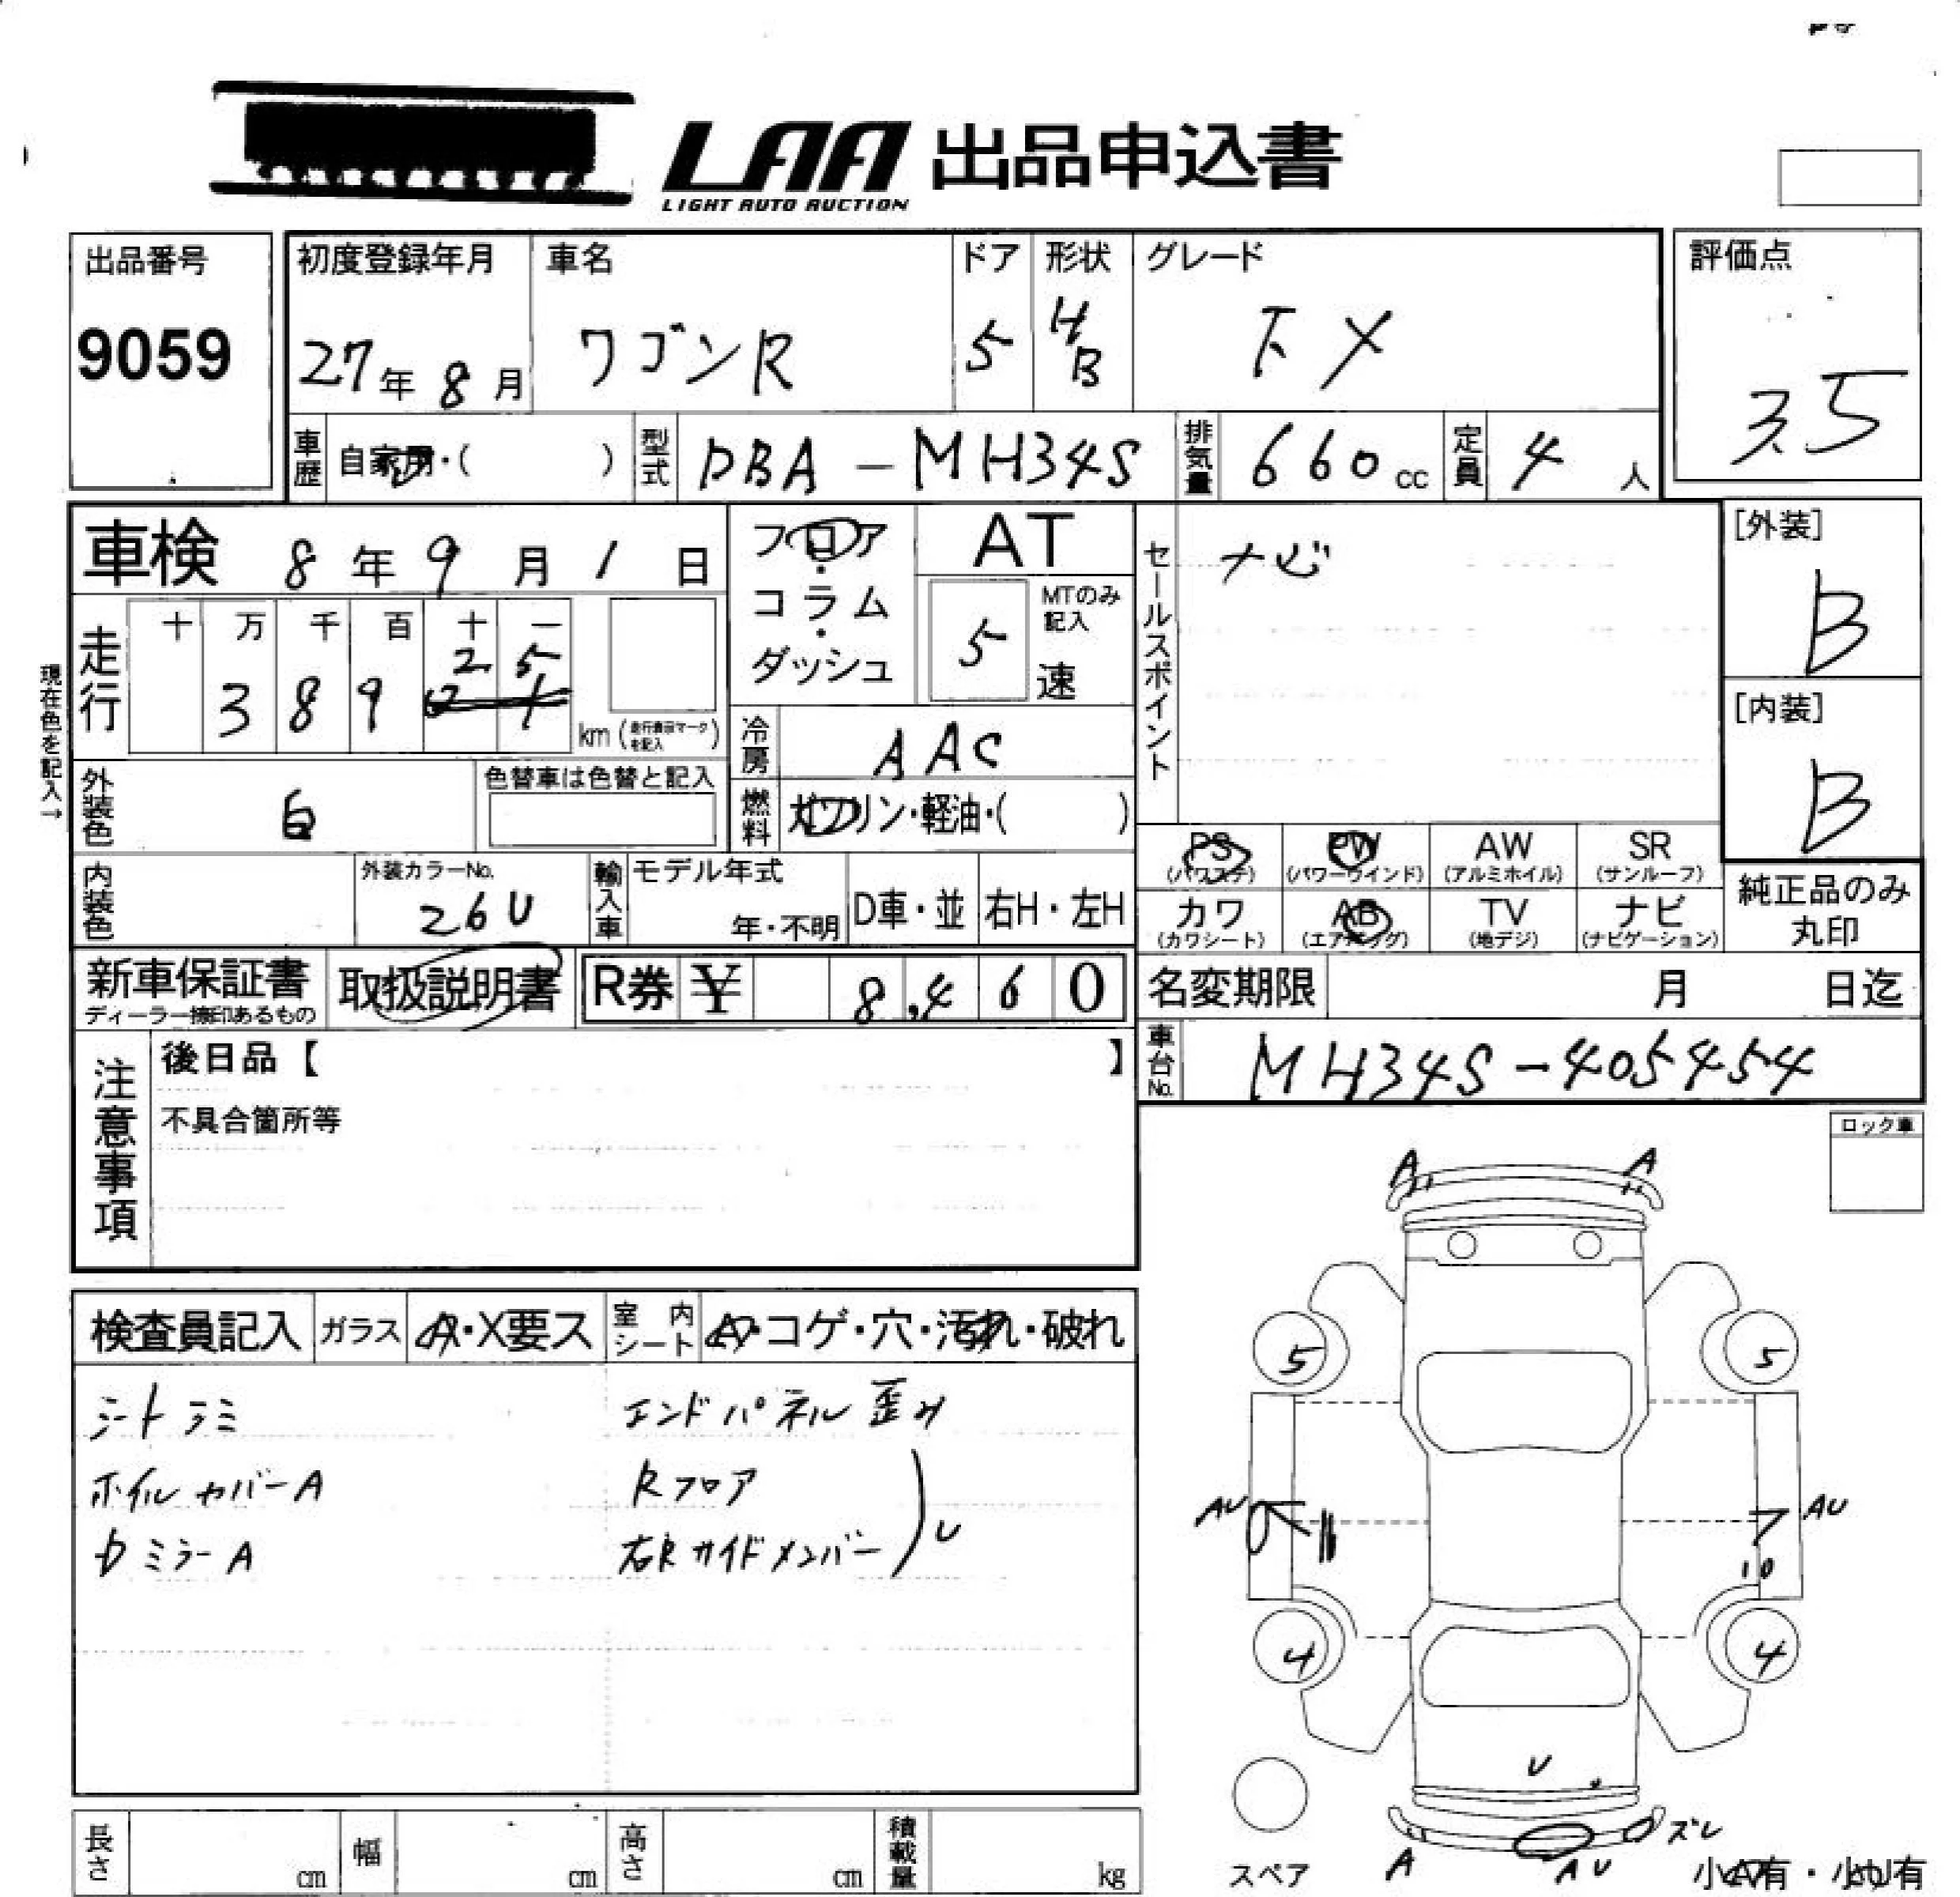 LAA 出品申込書
LIGHT AUTO AUCTION
出品番号
9059
初度登録年月
27年8月
車名
ワゴンR
ドア
5
形状
H/B
グレード
FX
評価点
3.5
車歴 自家用・( )
型式 DBA-MH34S
排気量 660cc
定員 4人
車検 8年9月1日
フロア・コラム・ダッシュ
AT
5速
MTのみ記入
セールスポイント
ナビ
[外装]
B
[内装]
B
現在色を記入→
走行
十 万 千 百 十 一
2 5
3 8 9
km
冷房 AAC
外装色 白
色替車は色替と記入
燃料 ガソリン・軽油・( )
内装色
外装カラーNo.
26U
輸入車 モデル年式
年・不明
D車・並
右H・左H
PS (パワステ)
PW (パワーウインド)
AW (アルミホイル)
SR (サンルーフ)
カワ (カワシート)
AB (エアバッグ)
TV (地デジ)
ナビ (ナビゲーション)
純正品のみ丸印
新車保証書
取扱説明書
R券 ¥ 8,460
名変期限 月 日迄
車台No. MH34S-405454
注意事項
後日品【 】
不具合箇所等
ロック車
検査員記入
ガラス A・X要ス
室内シート A・コゲ・穴・汚れ・破れ
シートラミ
エンドパネル歪み
ホイルカバーA
Rフロア
ミラーA
右Rサイドメンバー
U
A A
5 5
AU AU
10
4 4
U
ズレ
A AU
スペア
小A有・小U有
長さ cm
幅 cm
高さ cm
積載量 kg